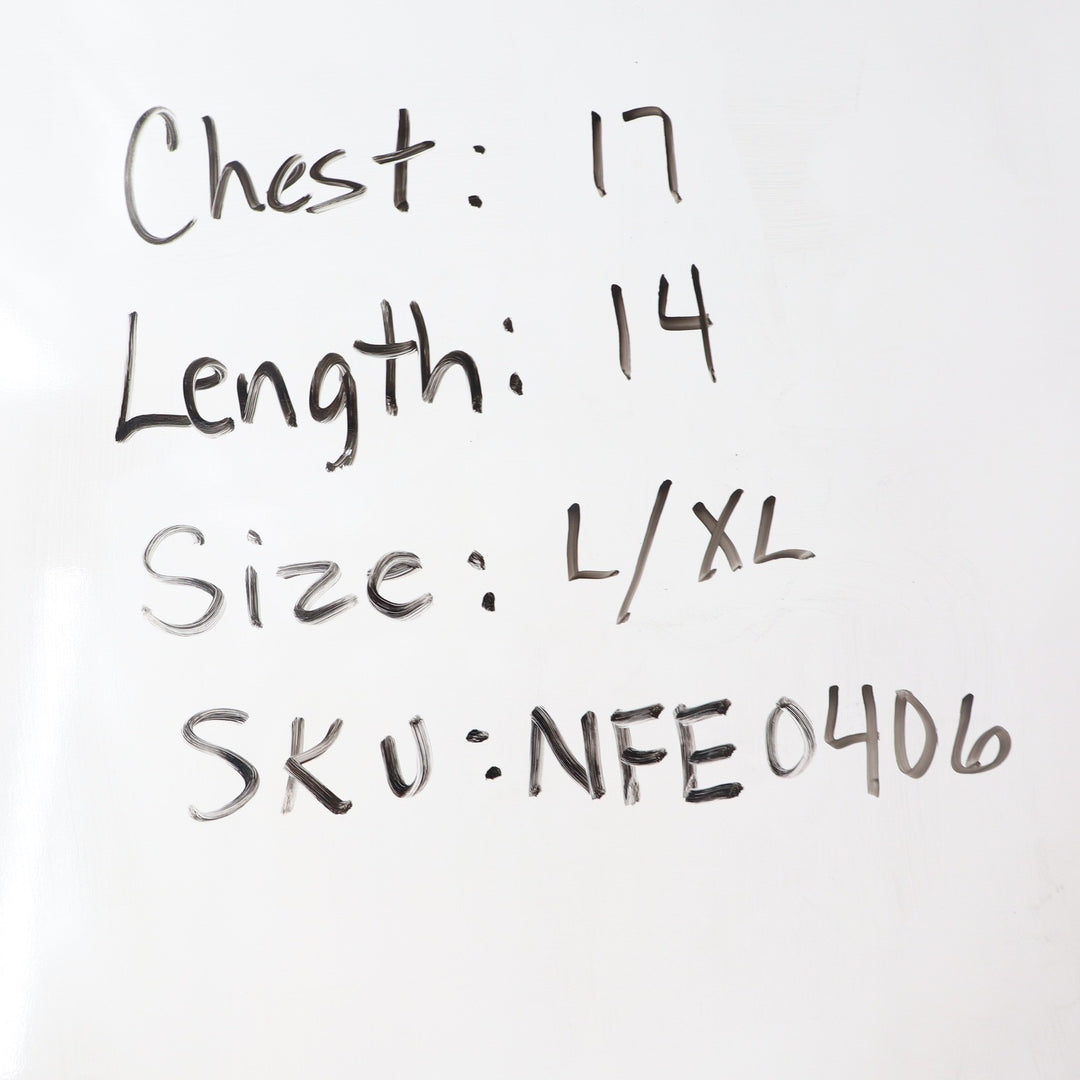 Chest: 17
Length: 14
Size: L/XL
SKU: NFE0406